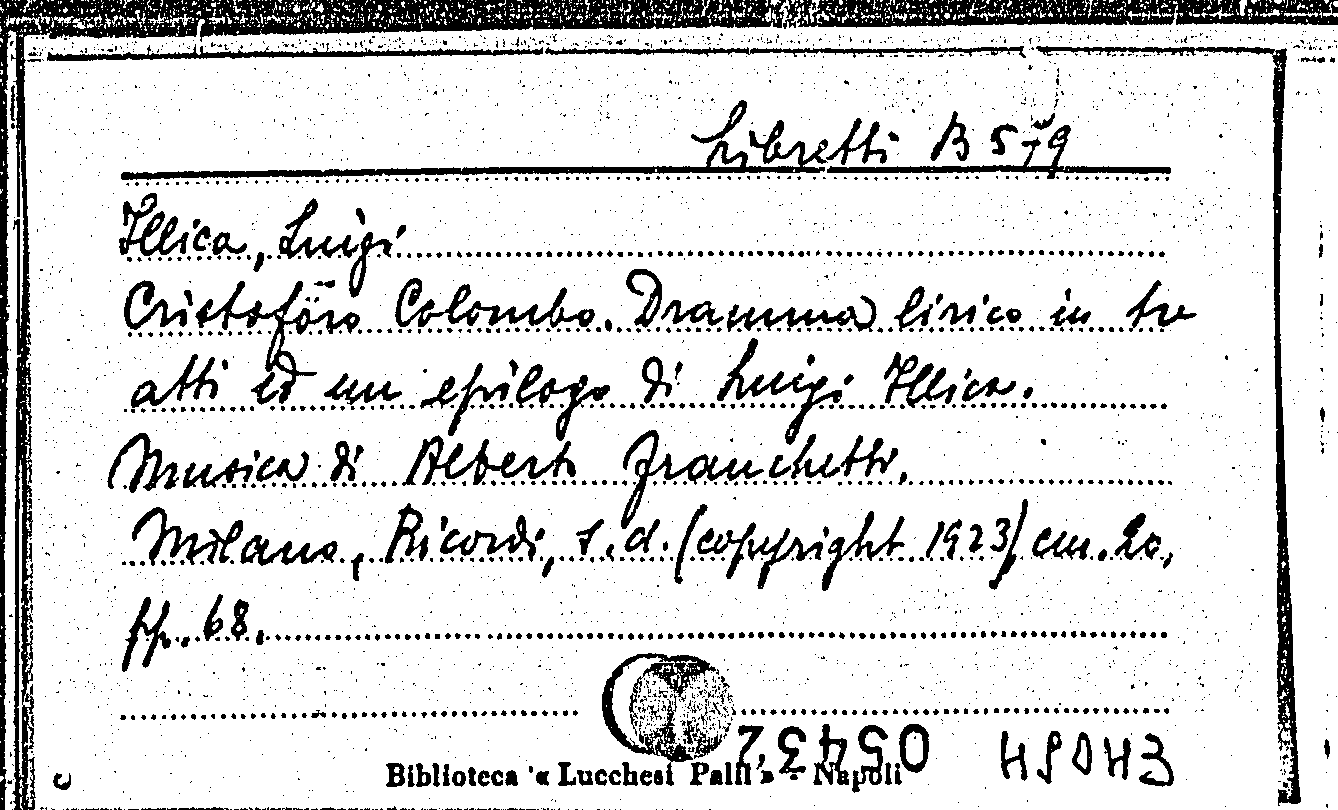 Libretti B 579
Illica, Luigi
Cristoforo Colombo. Dramma lirico in tre
atti ed un epilogo di Luigi Illica.
Musica di Alberto Franchetti.
Milano, Ricordi, s.d. (copyright 1923) cm. 20,
pp. 68.
05432
Biblioteca « Lucchesi Palli » - Napoli